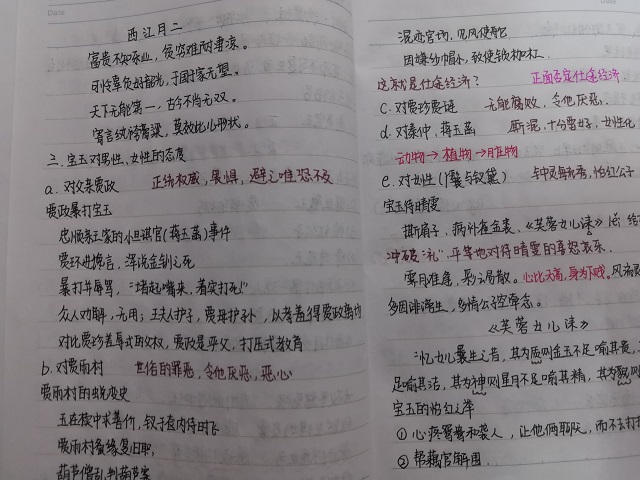 Date
西江月二
富贵不知乐业，贫穷难耐凄凉。
可怜辜负好韶光，于国于家无望。
天下无能第一，古今不肖无双。
寄言纨绔膏粱，莫效此儿形状。
三、宝玉对男性、女性的态度
a. 对父亲贾政 正统权威，畏惧，避之唯恐不及
贾政暴打宝玉
忠顺亲王家的小旦琪官(蒋玉菡)事件
贾环进谗言，浑说金钏之死
暴打并辱骂，"堵起嘴来，着实打死"
众人劝解，无用；王夫人护子，贾母护孙，以孝羞得贾政
对比贾珍羞辱式的父权，贾政是严父，打压式教育
b. 对贾雨村 世俗的罪恶，令他厌恶，恶心
贾雨村的蜕变史
玉在椟中求善价，钗于奁内待时飞
贾雨村夤缘复旧职，
葫芦僧乱判葫芦案
Date
混迹官场，见风使舵
因嫌纱帽小，致使锁枷扛
这就是仕途经济？ 正面否定仕途经济
c. 对贾珍贾琏 无能腐败，令他厌恶.
d. 对秦仲，蒋玉菡 厮混，十分要好，女性化
动物→植物→月性物
e. 对女性(袭与钗黛) 怡红公子
宝玉待晴雯
撕扇子，病补雀金裘、《芙蓉女儿诔》
冲破"礼"，平等地对待晴雯的喜怒哀乐.
霁月难逢，彩云易散。心比天高，身为下贱。风流
多因诽谤生，多情公子空牵念。
《芙蓉女儿诔》
忆女儿曩生之昔，其为质则金玉不足喻其贵，
足喻其洁，其为神则星月不足喻其精，其为貌则
宝玉的怡红之举
① 心疼鸳鸯和袭人，让他俩歇，而不去打
② 帮藕官解围.